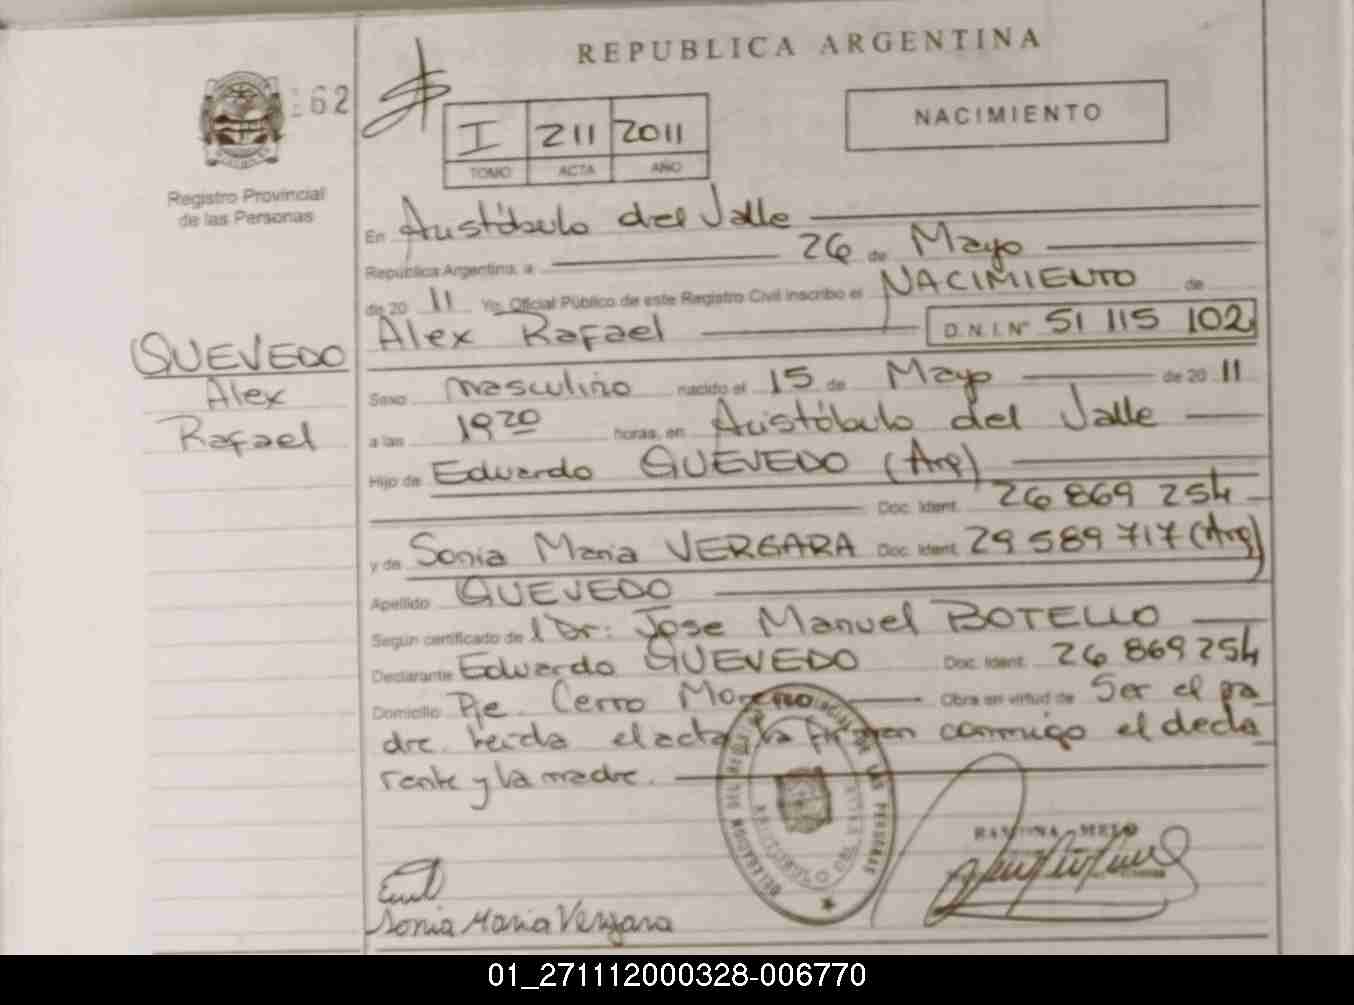 REPUBLICA ARGENTINA
162
NACIMIENTO
I 211 2011
TOMO ACTA AÑO
Registro Provincial
de las Personas
En Aristóbulo del Valle
República Argentina, a 26 de Mayo
de 20 11 Yo, Oficial Público de este Registro Civil inscribo el NACIMIENTO de
Alex Rafael D.N.I. Nº 51 115 102
QUEVEDO
Alex
Rafael
Sexo masculino nacido el 15 de Mayo de 20 11
a las 19 20 horas, en Aristóbulo del Valle
Hijo de Eduardo QUEVEDO (Arg)
Doc. Ident. 26 869 254
y de Sonia Maria VERGARA Doc. Ident. 29 589 717 (Arg)
Apellido QUEVEDO
Según certificado de l Dr: Jose Manuel BOTELLO
Declarante Eduardo QUEVEDO Doc. Ident. 26 869 254
Domicilio Pje. Cerro Moreno Obra en virtud de Ser el pa
dre. leida el acta la firman conmigo el decla
rante y la madre.
DELEGACION DEL REGISTRO PROVINCIAL DE LAS PERSONAS
ARISTOBULO DEL VALLE
Sonia Maria Vergara
01_271112000328-006770